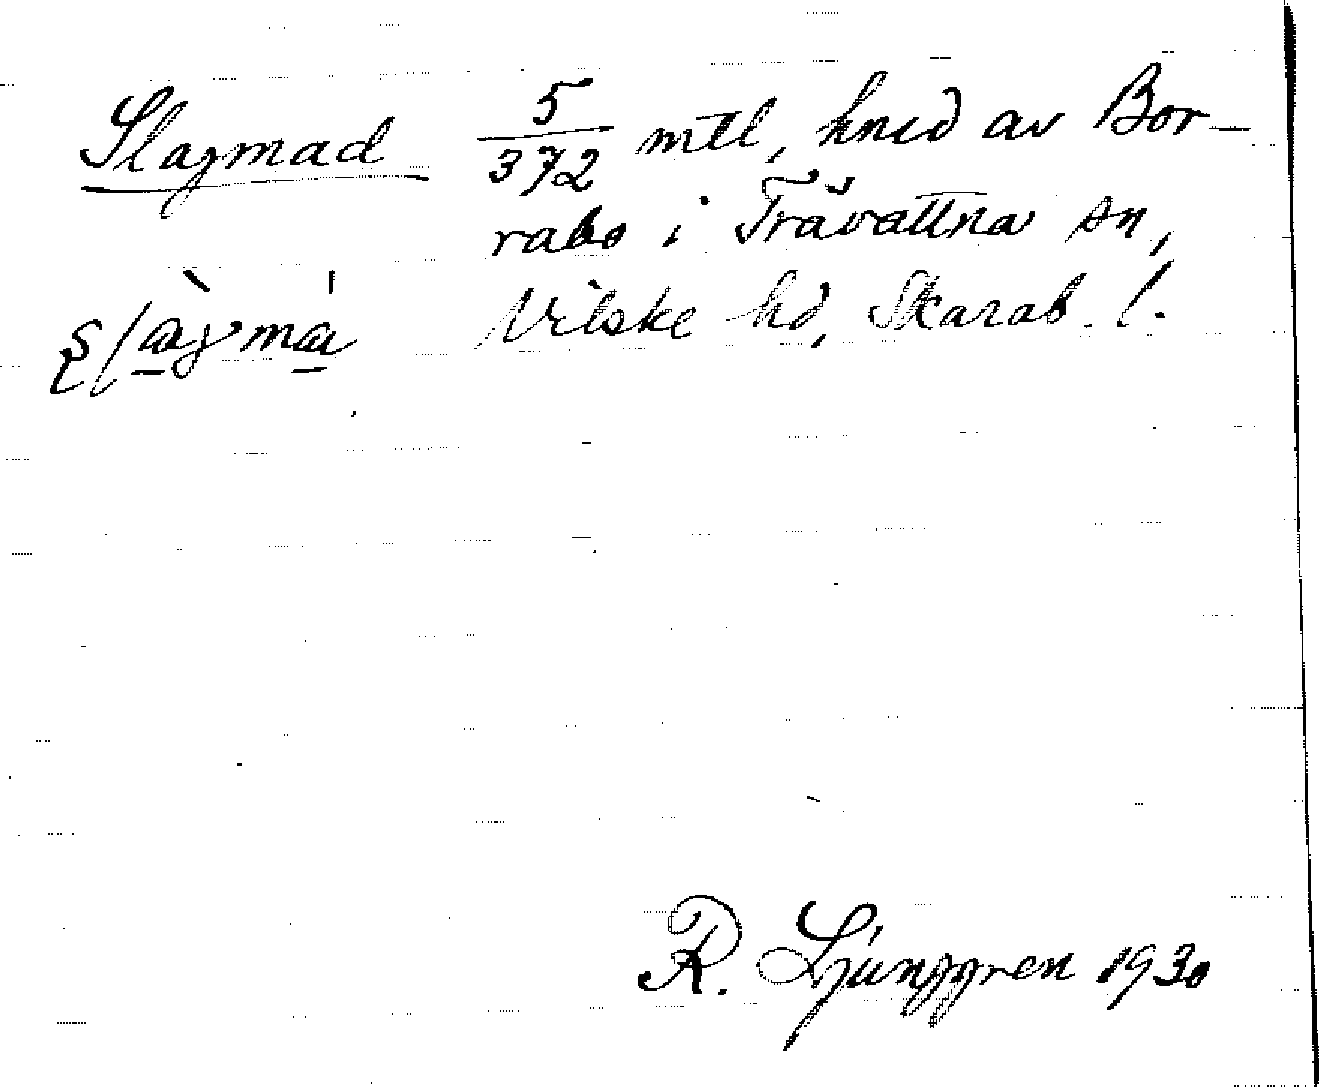 Slagmad 5/372 mtl, hmd av Bor-
rabo i Trävattna sn,
Vilske hd, Skarab. l.
R. Ljunggren 1930